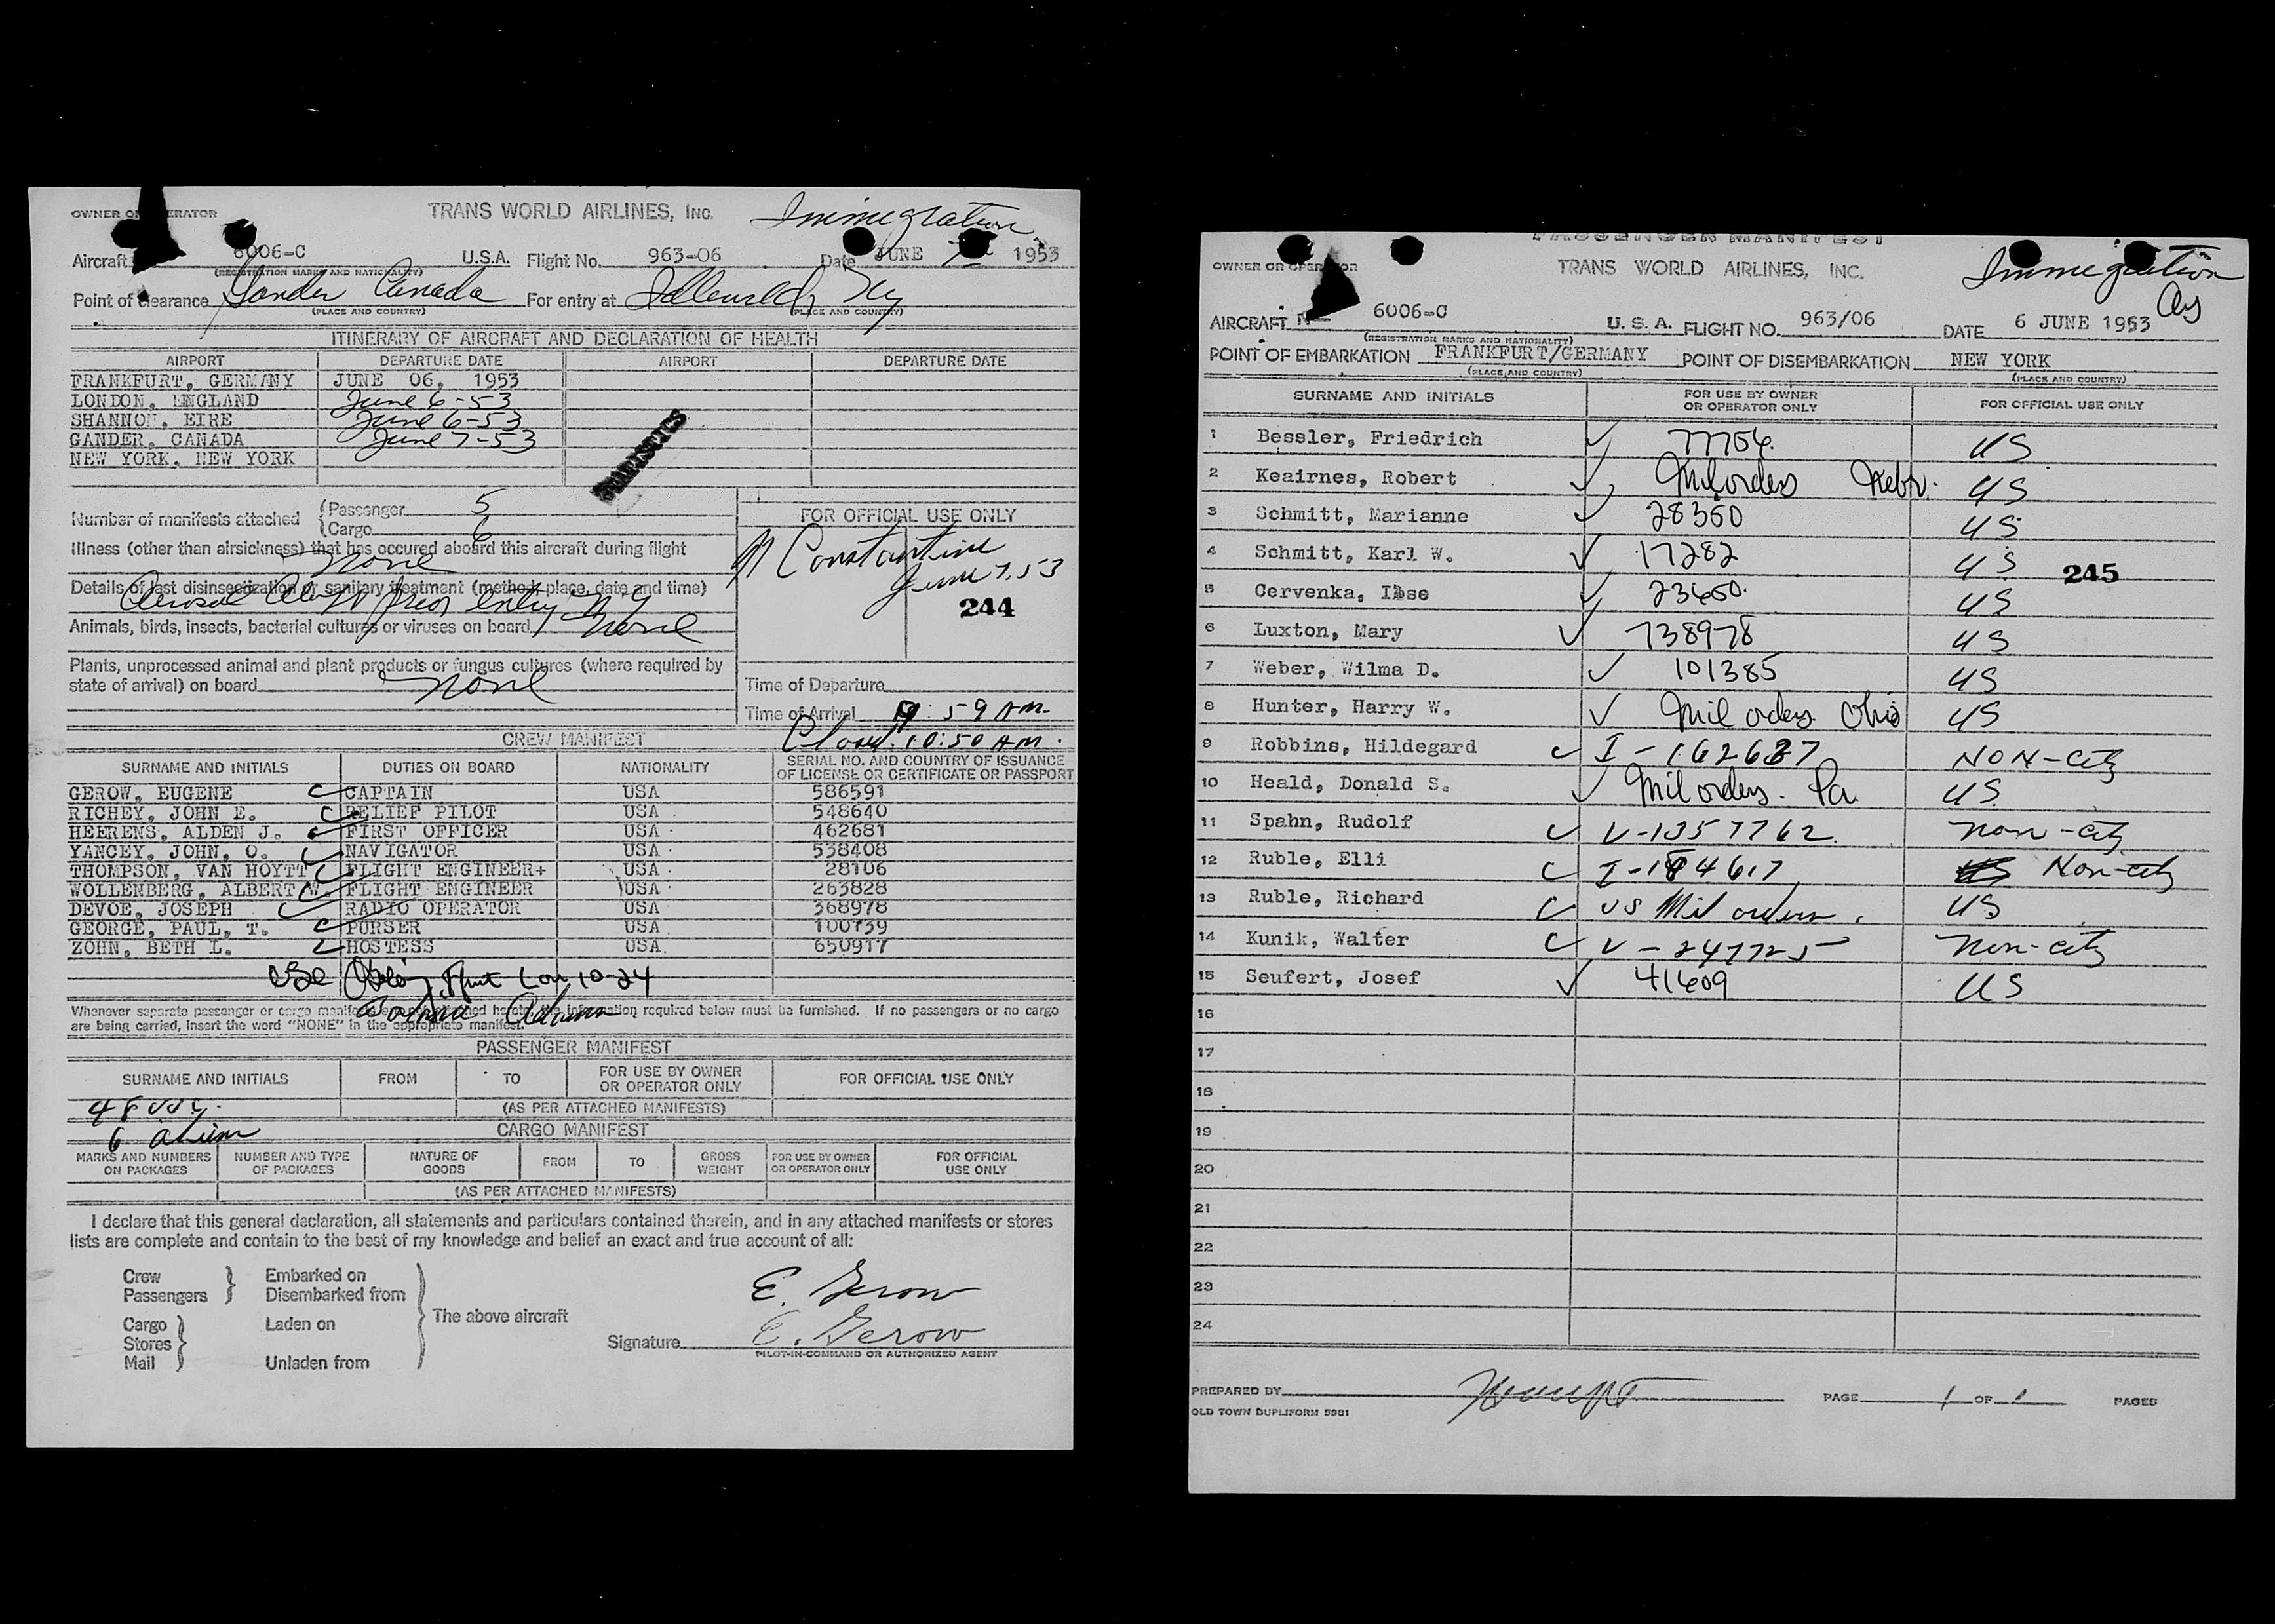 OWNER OR OPERATOR TRANS WORLD AIRLINES, INC. Immigration
Aircraft 6006-C U.S.A. Flight No. 963-06 Date JUNE 7 1953
(REGISTRATION MARKS AND NATIONALITY)
Point of clearance Gander Canada For entry at Idlewild, NY
(PLACE AND COUNTRY) (PLACE AND COUNTRY)
ITINERARY OF AIRCRAFT AND DECLARATION OF HEALTH
AIRPORT DEPARTURE DATE AIRPORT DEPARTURE DATE
FRANKFURT, GERMANY JUNE 06, 1953
LONDON, ENGLAND June 6-53
SHANNON, EIRE June 6-53
GANDER, CANADA June 7-53
NEW YORK, NEW YORK
STATISTICS
Number of manifests attached Passenger 5
Cargo 6
FOR OFFICIAL USE ONLY
Illness (other than airsickness) that has occured aboard this aircraft during flight
none
Constantine
June 7.53
244
Details of last disinsectization or sanitary treatment (method, place, date and time)
Aerosol prior entry N.Y
Animals, birds, insects, bacterial cultures or viruses on board none
Plants, unprocessed animal and plant products or fungus cultures (where required by
state of arrival) on board none
Time of Departure
Time of Arrival 9:59 AM.
10:50 AM.
CREW MANIFEST
SURNAME AND INITIALS DUTIES ON BOARD NATIONALITY SERIAL NO. AND COUNTRY OF ISSUANCE
OF LICENSE OR CERTIFICATE OR PASSPORT
GEROW, EUGENE CAPTAIN USA 586591
RICHEY, JOHN E. RELIEF PILOT USA 548640
HEERENS, ALDEN J. FIRST OFFICER USA 462681
YANCEY, JOHN, O. NAVIGATOR USA 538408
THOMPSON, VAN HOYTT FLIGHT ENGINEER+ USA 28106
WOLLENBERG, ALBERT W. FLIGHT ENGINEER USA 263828
DEVOE, JOSEPH RADIO OPERATOR USA 368978
GEORGE, PAUL, T. PURSER USA 100739
ZOHN, BETH L. HOSTESS USA 650917
10-24
Adams
Whenever separate passenger or cargo manifests are attached hereto, the information required below must be furnished. If no passengers or no cargo
are being carried, insert the word "NONE" in the appropriate manifest.
PASSENGER MANIFEST
SURNAME AND INITIALS FROM TO FOR USE BY OWNER
OR OPERATOR ONLY FOR OFFICIAL USE ONLY
48
(AS PER ATTACHED MANIFESTS)
6 alien
CARGO MANIFEST
MARKS AND NUMBERS
ON PACKAGES NUMBER AND TYPE
OF PACKAGES NATURE OF
GOODS FROM TO GROSS
WEIGHT FOR USE BY OWNER
OR OPERATOR ONLY FOR OFFICIAL
USE ONLY
(AS PER ATTACHED MANIFESTS)
I declare that this general declaration, all statements and particulars contained therein, and in any attached manifests or stores
lists are complete and contain to the best of my knowledge and belief an exact and true account of all:
Crew Embarked on
Passengers Disembarked from
The above aircraft
Cargo Laden on
Stores
Mail Unladen from
E. Gerow
Signature E. Gerow
PILOT-IN-COMMAND OR AUTHORIZED AGENT
PASSENGER MANIFEST
OWNER OR OPERATOR TRANS WORLD AIRLINES, INC. Immigration
AIRCRAFT N- 6006-C U. S. A. FLIGHT NO. 963/06 DATE 6 JUNE 1953
(REGISTRATION MARKS AND NATIONALITY)
POINT OF EMBARKATION FRANKFURT/GERMANY POINT OF DISEMBARKATION NEW YORK
(PLACE AND COUNTRY) (PLACE AND COUNTRY)
SURNAME AND INITIALS FOR USE BY OWNER
OR OPERATOR ONLY FOR OFFICIAL USE ONLY
1 Bessler, Friedrich 77756. US
2 Keairnes, Robert Mil orders Nebr. US
3 Schmitt, Marianne 28350 US
4 Schmitt, Karl W. 17282 US
245
5 Cervenka, Ilse 23450. US
6 Luxton, Mary 738978 US
7 Weber, Wilma D. 101385 US
8 Hunter, Harry W. Mil orders Ohio US
9 Robbins, Hildegard I-162637 NON-City
10 Heald, Donald S. Mil orders. Pa. US
11 Spahn, Rudolf V-1357762. Non-city
12 Ruble, Elli I-184617 Non-city
13 Ruble, Richard US Mil orders. US
14 Kunik, Walter V-247725 Non-city
15 Seufert, Josef 41609 US
16
17
18
19
20
21
22
23
24
PREPARED BY PAGE 1 OF 1 PAGES
OLD TOWN DUPLIFORM 5981